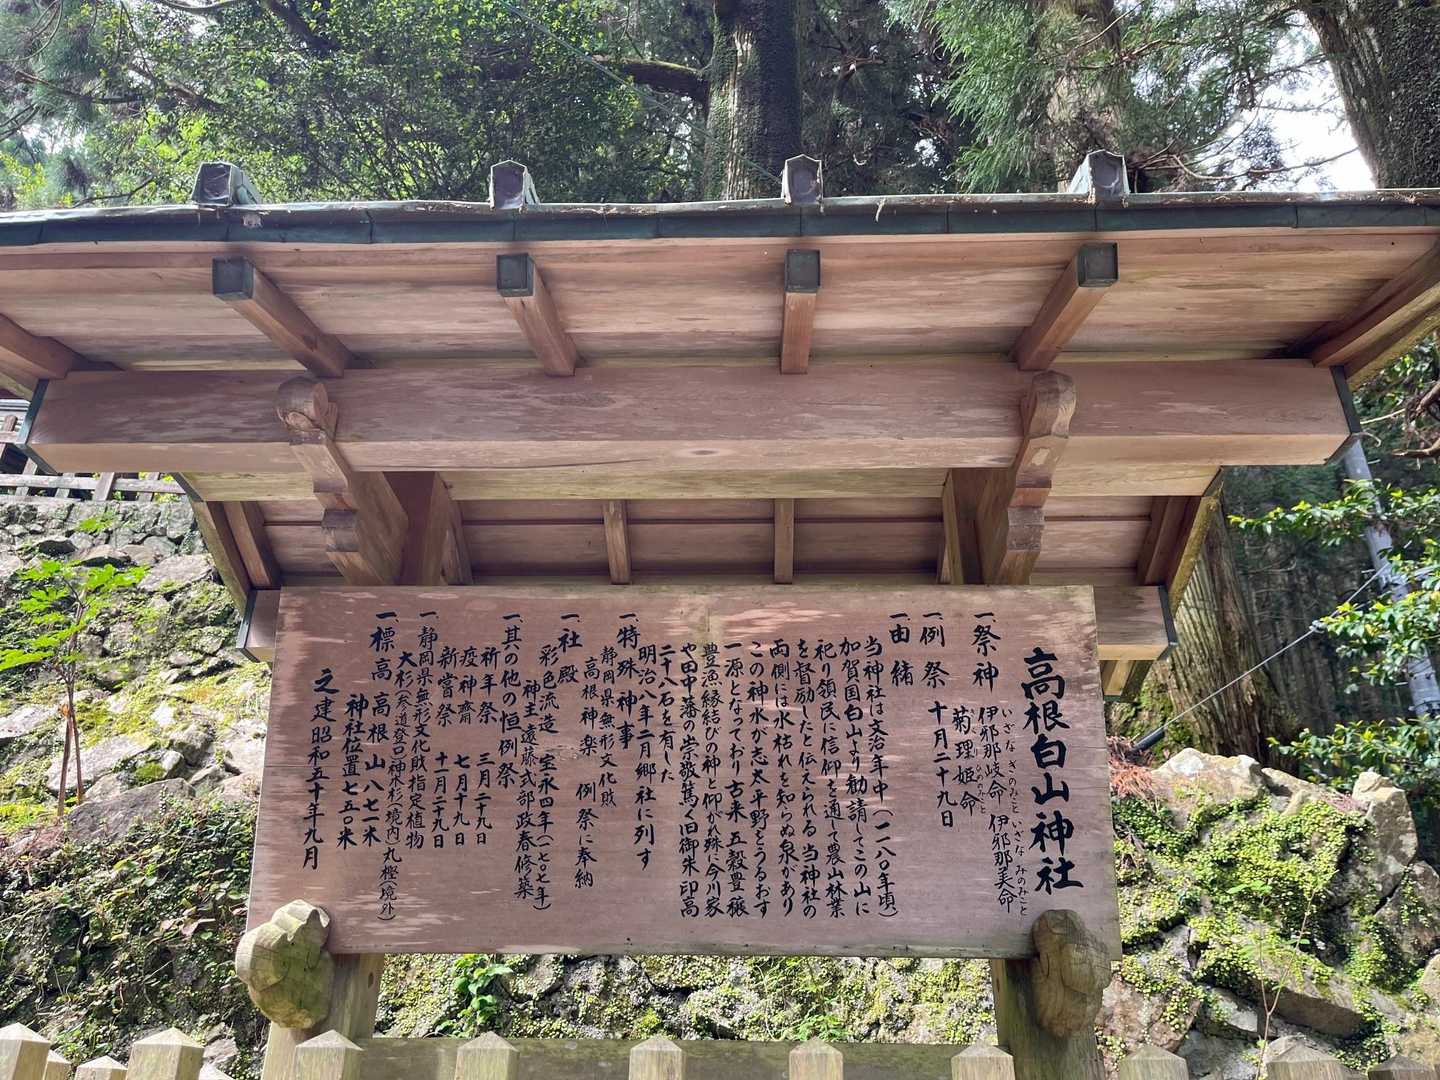 高根白山神社
一、祭神 伊邪那岐命 伊邪那美命
いざなぎのみこと いざなみのみこと
菊理姫命
一、例祭 十月二十九日
一、由緒
当神社は文治年中(一一八〇年頃)
加賀国白山より勧請してこの山に
祀り領民に信仰を通して農山林業
を督励したと伝えられる当神社の
両側には水枯れを知らぬ泉があり
この神水が志太平野をうるおす
一源となっており古来五穀豊穣
豊漁縁結びの神と仰がれ殊に今川家
や田中藩の崇敬篤く旧御朱印高
二十八石を有した
明治八年二月郷社に列す
一、特殊神事
静岡県無形文化財
高根神楽 例祭に奉納
一、社殿
彩色流造 宝永四年(一七〇七年)
神主遠藤式部政春修築
一、其の他の恒例祭
祈年祭 三月二十九日
疫神齋 七月十九日
新嘗祭 十一月二十九日
一、静岡県無形文化財指定植物
大杉(参道登口神木杉)(境内)丸樫(境外)
一、標高 高根山 八七一米
神社位置 七五〇米
之建昭和五十年九月